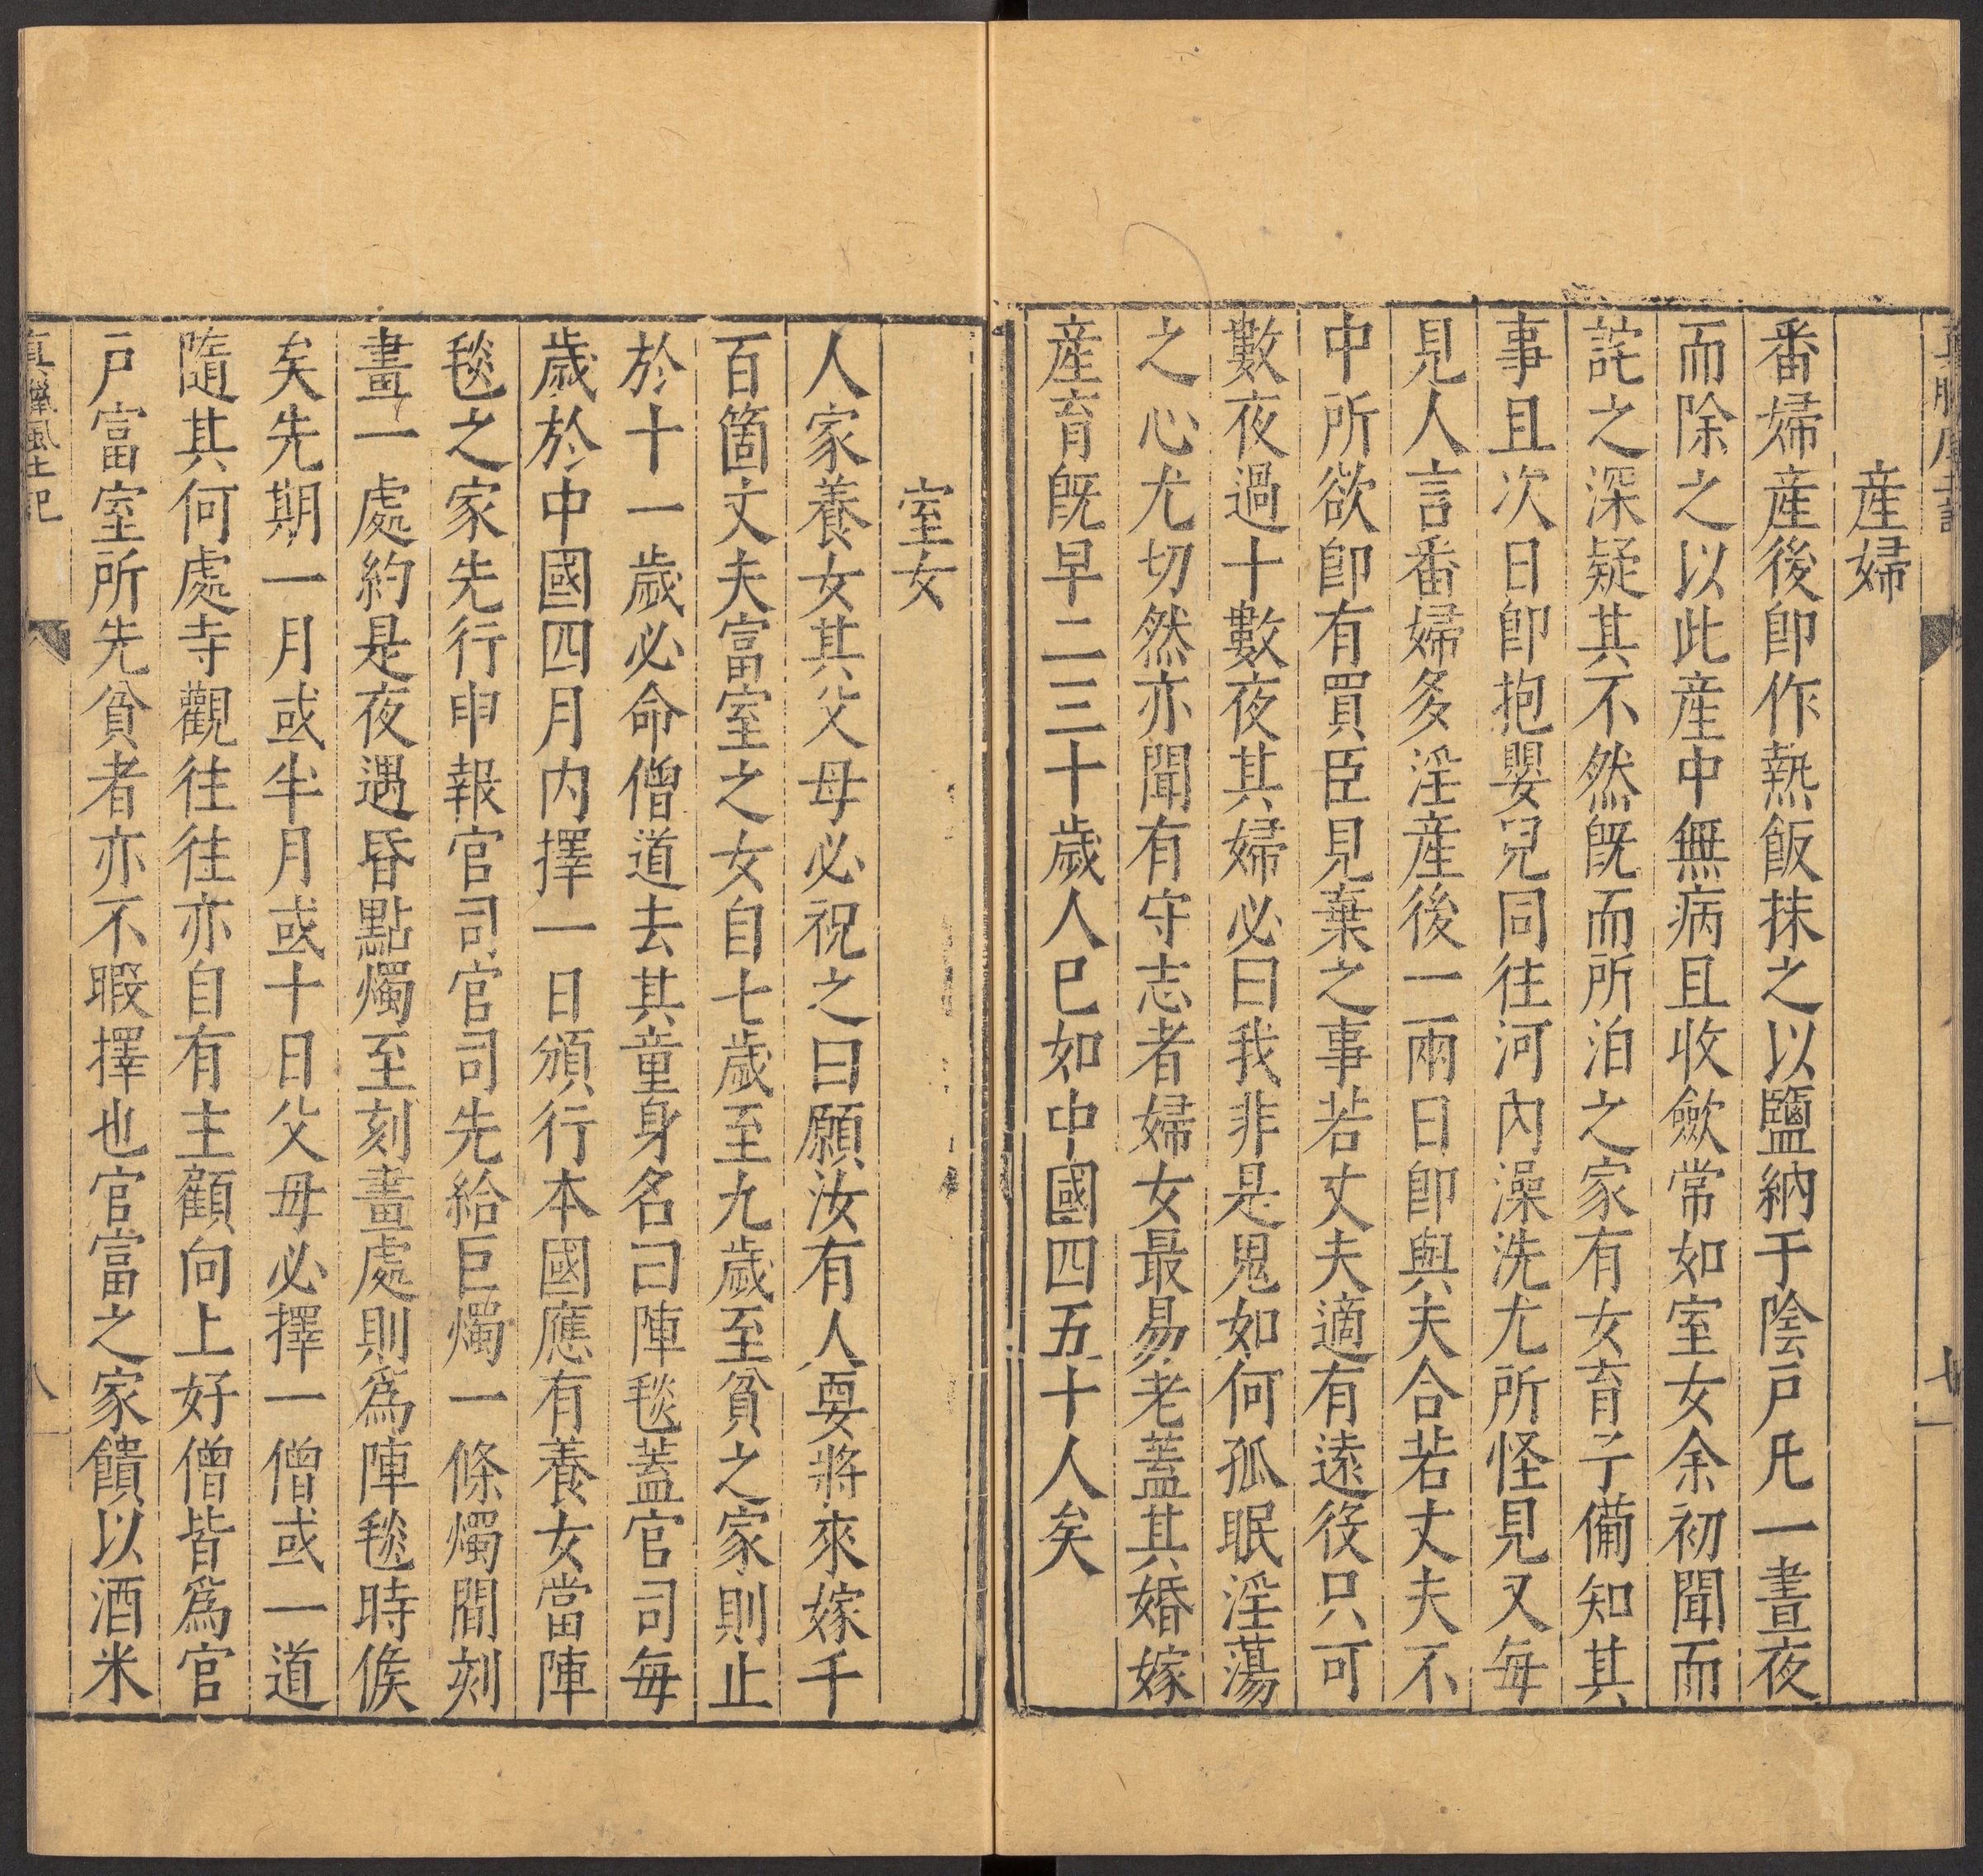 産婦
番婦産後即作熱飯抹之以鹽納于陰戸凡一晝夜
而除之以此産中無病且收斂常如室女余初聞而
詫之深疑其不然既而所泊之家有女育子備知其
事且次日即抱嬰兒同往河內澡洗尤所怪見又每
見人言番婦多淫産後一兩日即與夫合若丈夫不
中所欲即有買臣見棄之事若丈夫適有遠役只可
數夜過十數夜其婦必曰我非是鬼如何孤眠淫蕩
之心尤切然亦聞有守志者婦女最易老蓋其婚嫁
産育既早二三十歲人已如中國四五十人矣
室女
人家養女其父母必祝之曰願汝有人要將來嫁千
百箇丈夫富室之女自七歲至九歲至貧之家則止
於十一歲必命僧道去其童身名曰陣毯蓋官司每
歲於中國四月內擇一日頒行本國應有養女當陣
毯之家先行申報官司官司先給巨燭一條燭間刻
畫一處約是夜遇昏點燭至刻畫處則爲陣毯時候
矣先期一月或半月或十日父母必擇一僧或一道
隨其何處寺觀往往亦自有主顧向上好僧皆爲官
戸富室所先貧者亦不暇擇也官富之家饋以酒米
真臘風土記
八